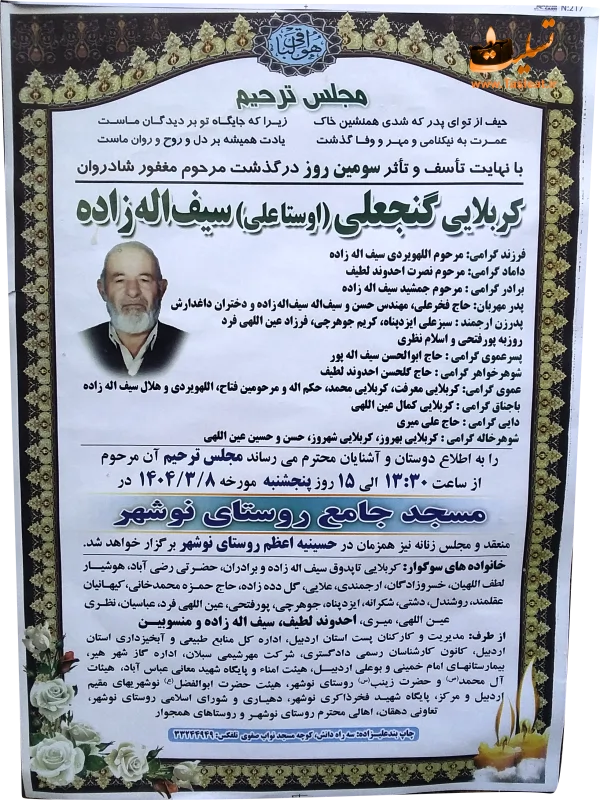 N:217
تسلیت
هوالباقی
مجلس ترحیم
حیف از تو ای پدر که شدی همنشین خاک زیرا که جایگاه تو بر دیدگان ماست
عمرت به نیکنامی و مهر و وفا گذشت یادت همیشه بر دل و روح و روان ماست
با نهایت تأسف و تأثر سومین روز درگذشت مرحوم مغفور شادروان
کربلایی گنجعلی (اوستاعلی) سیف اله زاده
فرزند گرامی: مرحوم اللهویردی سیف اله زاده
داماد گرامی: مرحوم نصرت احدوند لطیف
برادر گرامی: مرحوم جمشید سیف اله زاده
پدر مهربان: حاج فخرعلی، مهندس حسن و سیف‌اله سیف‌اله‌زاده و دختران داغدارش
پدرزن ارجمند: سبزعلی ایزدپناه، کریم جوهرچی، فرزاد عین اللهی فرد
روزبه پورفتحی و اسلام نظری
پسرعموی گرامی: حاج ابوالحسن سیف اله پور
شوهرخواهر گرامی: حاج گلحسن احدوند لطیف
عموی گرامی: کربلایی معرفت، کربلایی محمد، حکم اله و مرحومین فتاح، اللهویردی و هلال سیف اله زاده
باجناق گرامی: کربلایی کمال عین اللهی
دایی گرامی: حاج علی میری
شوهرخاله گرامی: کربلایی بهروز، کربلایی شهروز، حسن و حسین عین اللهی
را به اطلاع دوستان و آشنایان محترم می رساند مجلس ترحیم آن مرحوم
از ساعت ۱۳:۳۰ الی ۱۵ روز پنجشنبه مورخه ۱۴۰۴/۳/۸ در
مسجد جامع روستای نوشهر
منعقد و مجلس زنانه نیز همزمان در حسینیه اعظم روستای نوشهر برگزار خواهد شد.
خانواده های سوگوار: کربلایی تاپدوق سیف اله زاده و برادران، حضرتی رضی آباد، هوشیار
لطف اللهیان، خسروزادگان، ارجمندی، علایی، گل دده زاده، حاج حمزه محمدخانی، کیهانیان
عقلمند، روشندل، دشتی، شکرانه، ایزدپناه، جوهرچی، پورفتحی، عین اللهی فرد، عباسیان، نظری
عین اللهی، میری، احدوند لطیف، سیف اله زاده و منسوبین
از طرف: مدیریت و کارکنان پست استان اردبیل، اداره کل منابع طبیعی و آبخیزداری استان
اردبیل، کانون کارشناسان رسمی دادگستری، شرکت مهرشیمی سبلان، اداره گاز شهر هیر،
بیمارستانهای امام خمینی و بوعلی اردبیل، هیئت امناء و پایگاه شهید معانی عباس آباد، هیئات
آل محمد(ص) و حضرت زینب(س) روستای نوشهر، هیئت حضرت ابوالفضل(ع) نوشهریهای مقیم
اردبیل و مرکز، پایگاه شهید فخرذاکری نوشهر، دهیاری و شورای اسلامی روستای نوشهر،
تعاونی دهقان، اهالی محترم روستای نوشهر و روستاهای همجوار
چاپ بندعلیزاده: سه راه دانش، کوچه مسجد نواب صفوی تلفکس: ۳۳۲۴۴۹۴۹